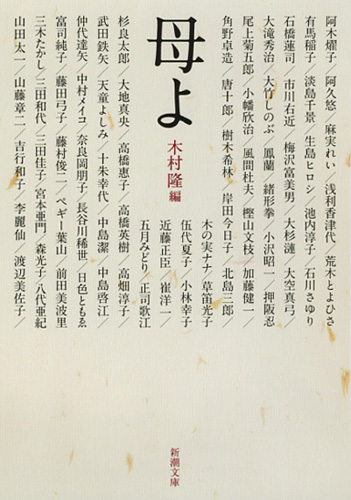 母よ
木村隆 編
阿木燿子／阿久悠／麻実れい／浅利香津代／荒木とよひさ
有馬稲子／淡島千景／生島ヒロシ／池内淳子／石川さゆり
石橋蓮司／市川右近／梅沢富美男／大杉漣／大空真弓／
大滝秀治／大竹しのぶ／鳳蘭／緒形拳／小沢昭一／押阪忍
尾上菊五郎／小幡欣治／風間杜夫／樫山文枝／加藤健一／
角野卓造／唐十郎／樹木希林／岸田今日子／北島三郎／
木の実ナナ／草笛光子
伍代夏子／小林幸子／
近藤正臣／崔洋一／
五月みどり／正司歌江
杉良太郎／大地真央／高橋惠子／高橋英樹／高畑淳子／
武田鉄矢／天童よしみ／十朱幸代／中島潔／中島啓江／
仲代達矢／中村メイコ／奈良岡朋子／長谷川稀世／日色ともゑ
富司純子／藤田弓子／藤村俊二／ペギー葉山／前田美波里
三木たかし／三田和代／三田佳子／宮本亜門／森光子／八代亜紀
山田太一／山藤章二／吉行和子／李麗仙／渡辺美佐子／
新潮文庫